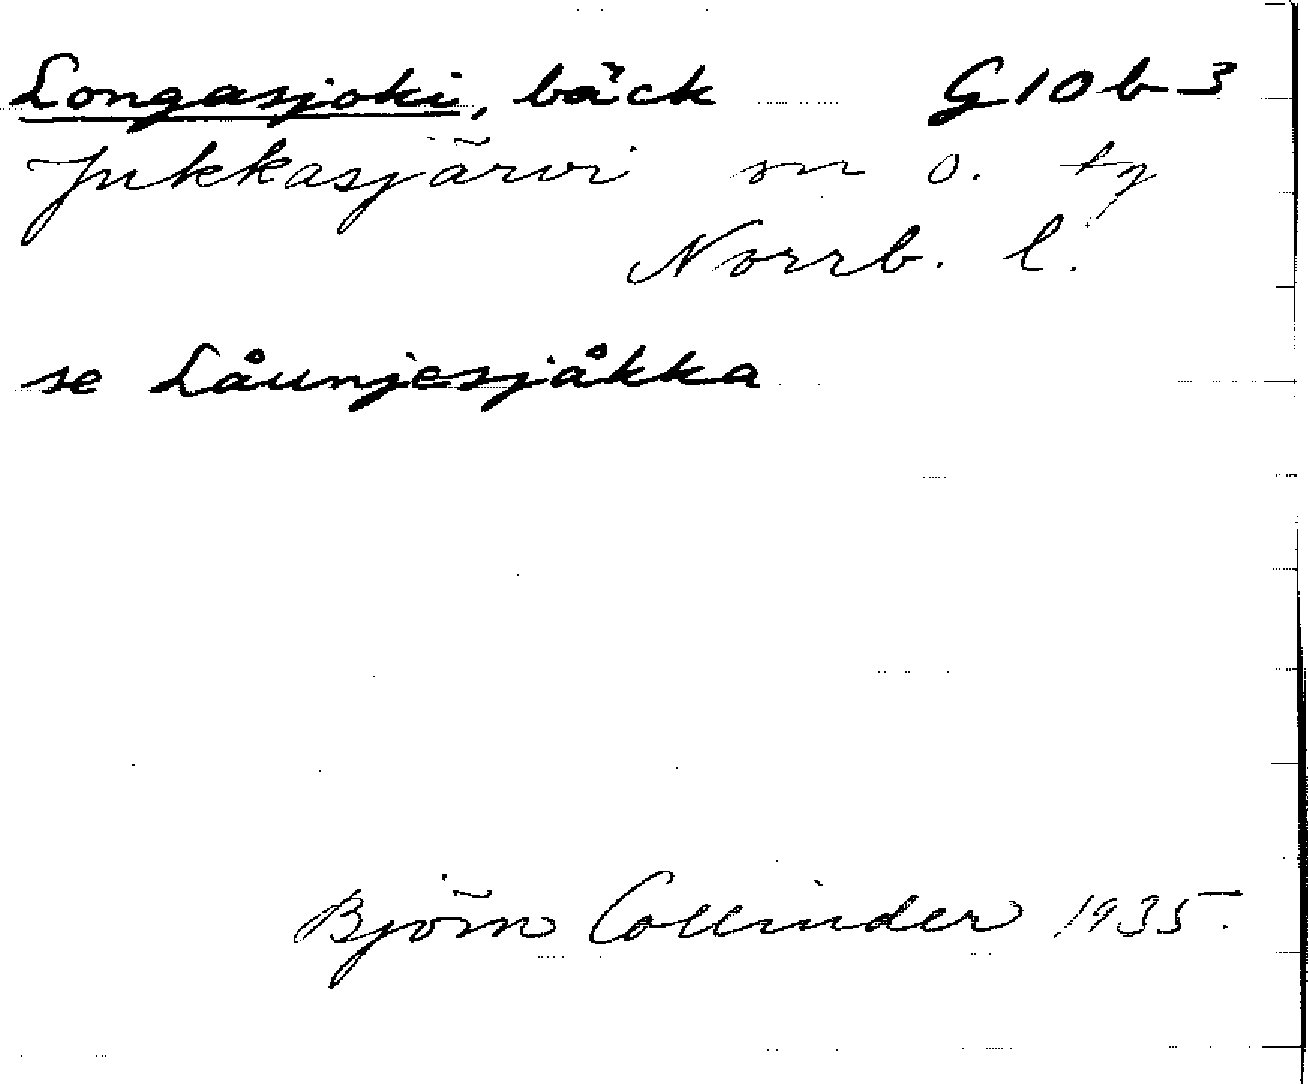 Longasjoki, bäck G10b3
Jukkasjärvi sn o. tg
Norrb. l.
se Låunjesjåkka
Björn Collinder 1935.